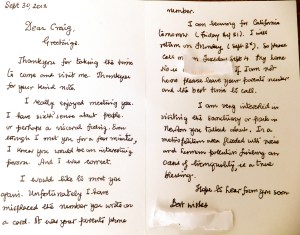 Sept 30, 2013
Dear Craig,
Greetings.
Thankyou for taking the time
to come and visit me. Thankyou
for your kind note.
I really enjoyed meeting you.
I have sixth sense about people
or perhaps a second
enough I met you for a few minutes,
I knew you would be an interesting
person. And I was correct.
I would like to meet you
again. Unfortunately I have
misplaced the number you wrote on
a card. It was your parents phone
number.
I am leaving for California
tomorrow (Friday
return on Monday (Sept
call me on Tuesday Sept 4. My home
No is
If I am not
home please leave your parents number
and the best time to call.
I am very interested in
visiting the sanctuary or park in
Newton you talked about. In a
metropolitan area flooded with noise
and human pollution finding an
oasis of tranquility is a true
blessing.
Hope to hear from you soon
Best wishes